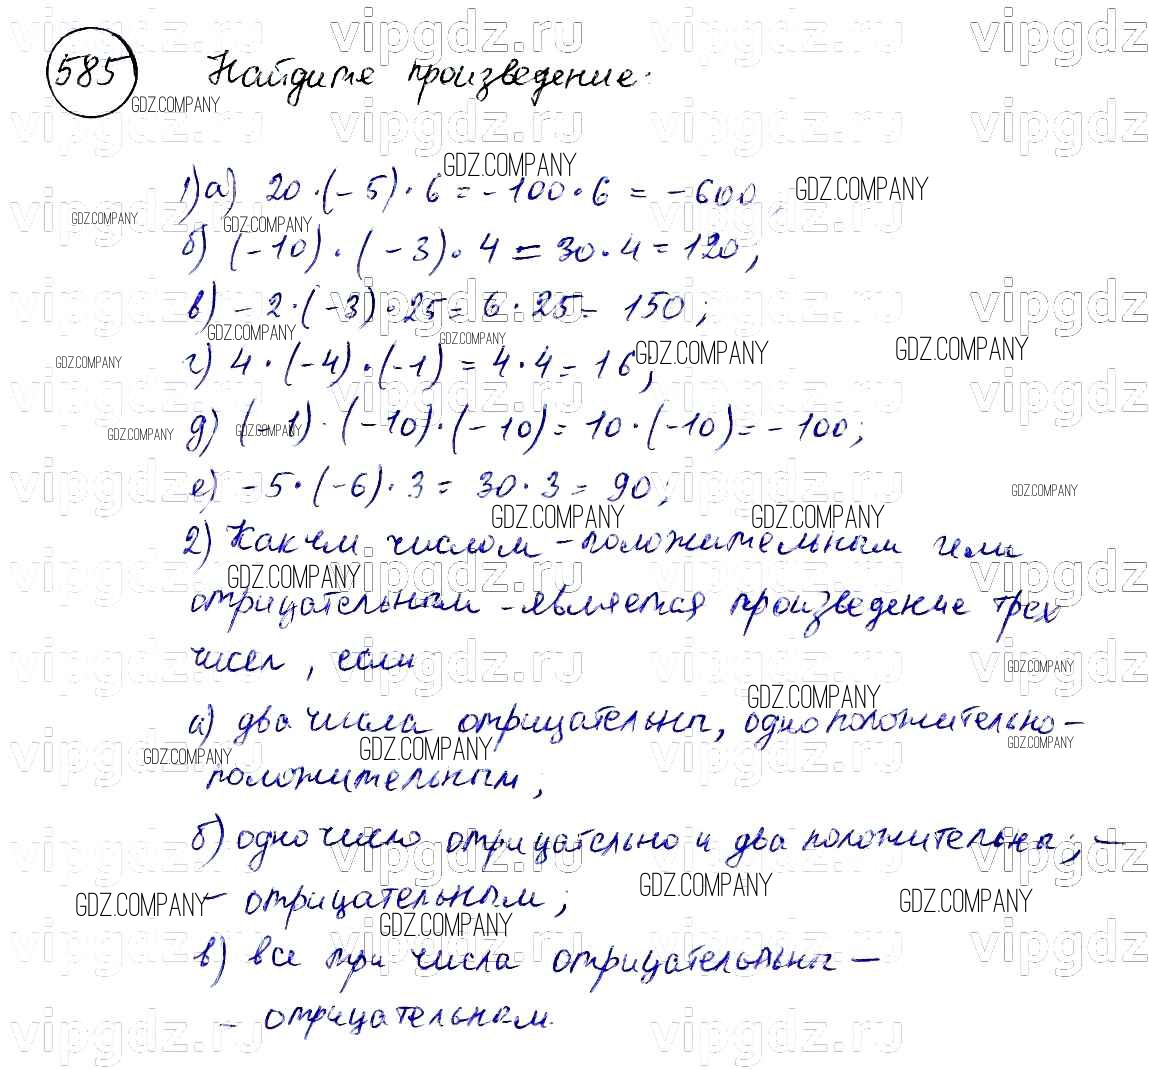 585 Найдите произведение:
1) а) 20 · (- 5) · 6 = - 100 · 6 = - 600;
б) (- 10) · (- 3) · 4 = 30 · 4 = 120;
в) - 2 · (- 3) · 25 = 6 · 25 = 150;
г) 4 · (- 4) · (-1) = 4 · 4 = 16;
д) (- 1) · (- 10) · (- 10) = 10 · (-10) = - 100;
е) - 5 · (-6) · 3 = 30 · 3 = 90;
2) Каким числом - положительным или
отрицательным - является произведение трех
чисел, если
а) два числа отрицательны, одно положительно -
положительным;
б) одно число отрицательно и два положительны; -
- отрицательным;
в) все три числа отрицательны -
- отрицательным.
GDZ.COMPANY
vipgdz.ru